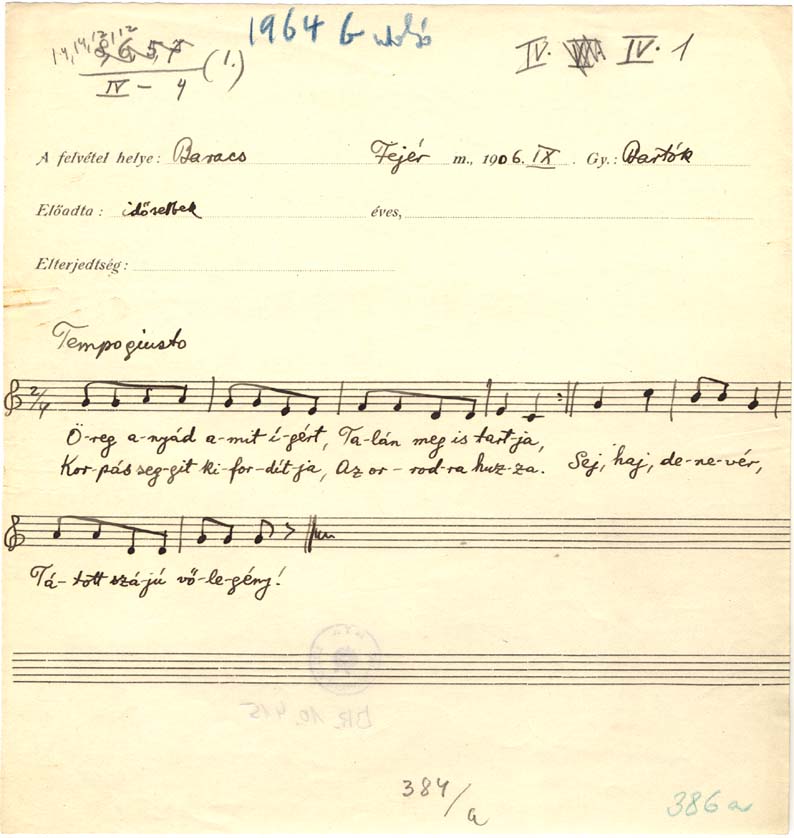 1964 G utolsó
14, 14, 12, 12
8, 6, 5, 7 (1.)
IV - 4
IV. IV. 1
A felvétel helye: Baracs Fejér m., 1906. IX. Gy.: Bartók
Előadta: idősebbek éves,
Elterjedtség:
Tempo giusto
2/4
Ö-reg a-nyád a-mit í-gért, Ta-lán meg is tart-ja,
Kor-pás seg-git ki-for-dít-ja, Az or-rod-ra huz-za. Sej, haj, de-ne-vér,
Tá-tott szá-jú vő-le-gény!
BR. 10.415
384/a
386 a